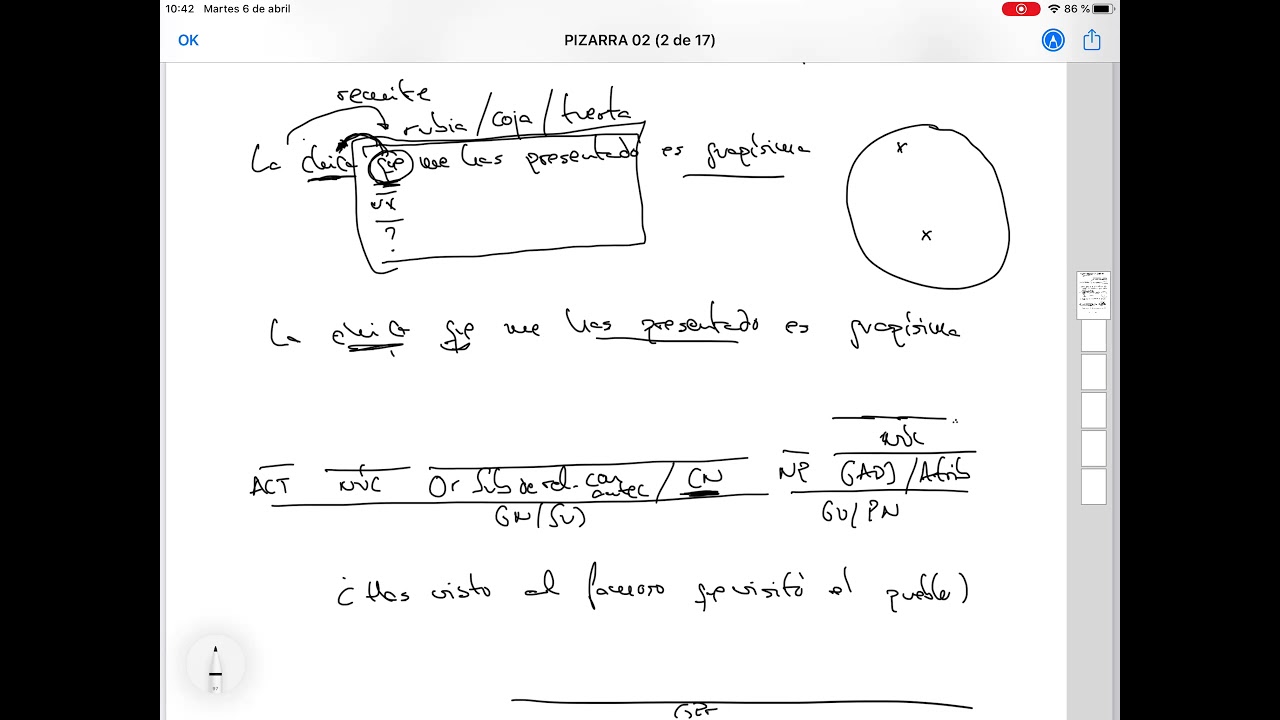 10:42 Martes 6 de abril 86 %
OK PIZARRA 02 (2 de 17)
remite
rubia / coja / tuerta
La chica que me has presentado es guapísima
nx
?
La chica que me has presentado es guapísima
núc
ACT núc Or Sub de rel. con antec / CN NP GADJ / Atrib
GN / SU GV / PN
¿Has visto al famoso que visitó el pueblo?